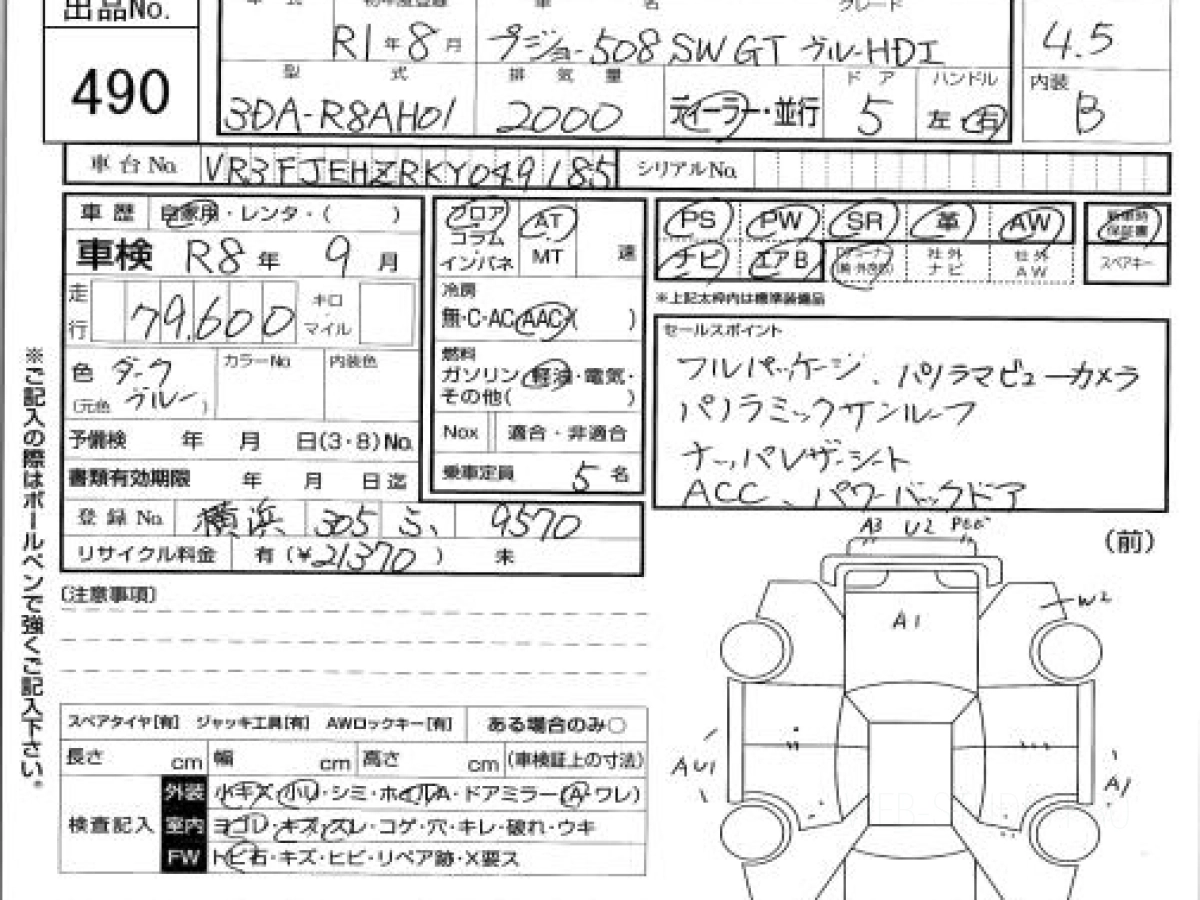 出品No.
490
年 式 初年度登録 車 名 グレード
R1年8月 プジョー508 SW GT ブルーHDI
4.5
型 式 排 気 量 ド ア ハンドル
3DA-R8AH01 2000 ディーラー・並行 5 左・右
内装
B
車台No. VR3FJEHZRKY049185 シリアルNo.
車歴 自家用・レンタ・( )
車検 R8年 9月
走行 79,600 キロ・マイル
色 ダークブルー
(元色 ) カラーNo 内装色
予備検 年 月 日(3・8)No.
書類有効期限 年 月 日迄
登録No. 横浜 305 ふ 9570
リサイクル料金 有(¥21370) 未
フロア
コラム
インパネ
AT
MT
速
冷房
無・C・AC・AAC( )
燃料
ガソリン・軽油・電気・
その他( )
Nox 適合・非適合
乗車定員 5名
PS PW SR 革 AW
ナビ エアB 社外ナビ 社外AW
新車時保証書
スペアキー
※上記太枠内は標準装備品
セールスポイント
フルパッケージ、パノラマビューカメラ
パノラミックサンルーフ
ナッパレザーシート
ACC、パワーバックドア
※ご記入の際はボールペンで強くご記入下さい。
(注意事項)
スペアタイヤ[有] ジャッキ工具[有] AWロックキー[有] ある場合のみ○
長さ cm 幅 cm 高さ cm (車検証上の寸法)
検査記入
外装 小キズ・小凹・シミ・ホイルA・ドアミラー(A・ワレ)
室内 ヨゴレ・キズ・スレ・コゲ・穴・キレ・破れ・ウキ
FW トビ石・キズ・ヒビ・リペア跡・X要ス
(前)
A3 U2
W2
A1
AU1
A1